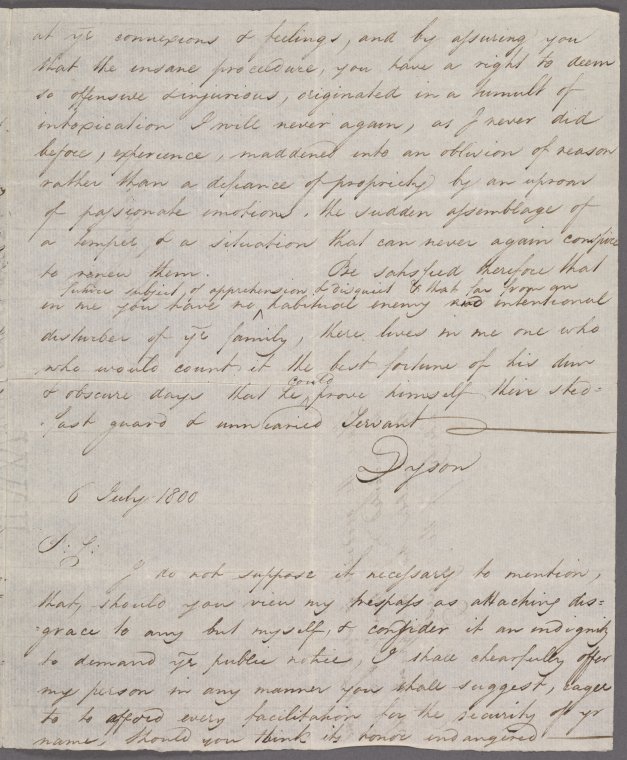 at yr connexions & feelings, and by assuring you
that the insane procedure, you have a right to deem
so offensive & injurious, originated in a tumult of
intoxication I will never again, as I never did
before, experience, maddened into an oblivion of reason
rather than a defiance of propriety by an uproar
of passionate emotions, the sudden assemblage of
a temper, & a situation that can never again conspire
to renew them. Be satisfied therefore that
future subject of apprehension & disquiet & that far from an
in me you have no habitual enemy and intentional
disturber of yr family, there lives in me one who
who would count it the best fortune of his dim
& obscure days that he could prove himself their sted=
=fast guard & unwearied Servant
Dyson
6 July 1800
P: S:
I do not suppose it necessary to mention,
that, should you view my trespass as attaching dis=
=grace to any but myself, & consider it an indignity
to demand yr public notice, I shall chearfully offer
my person in any manner you shall suggest, eager
to to afford every facilitation for the security of yr
name, should you think its honor endangered